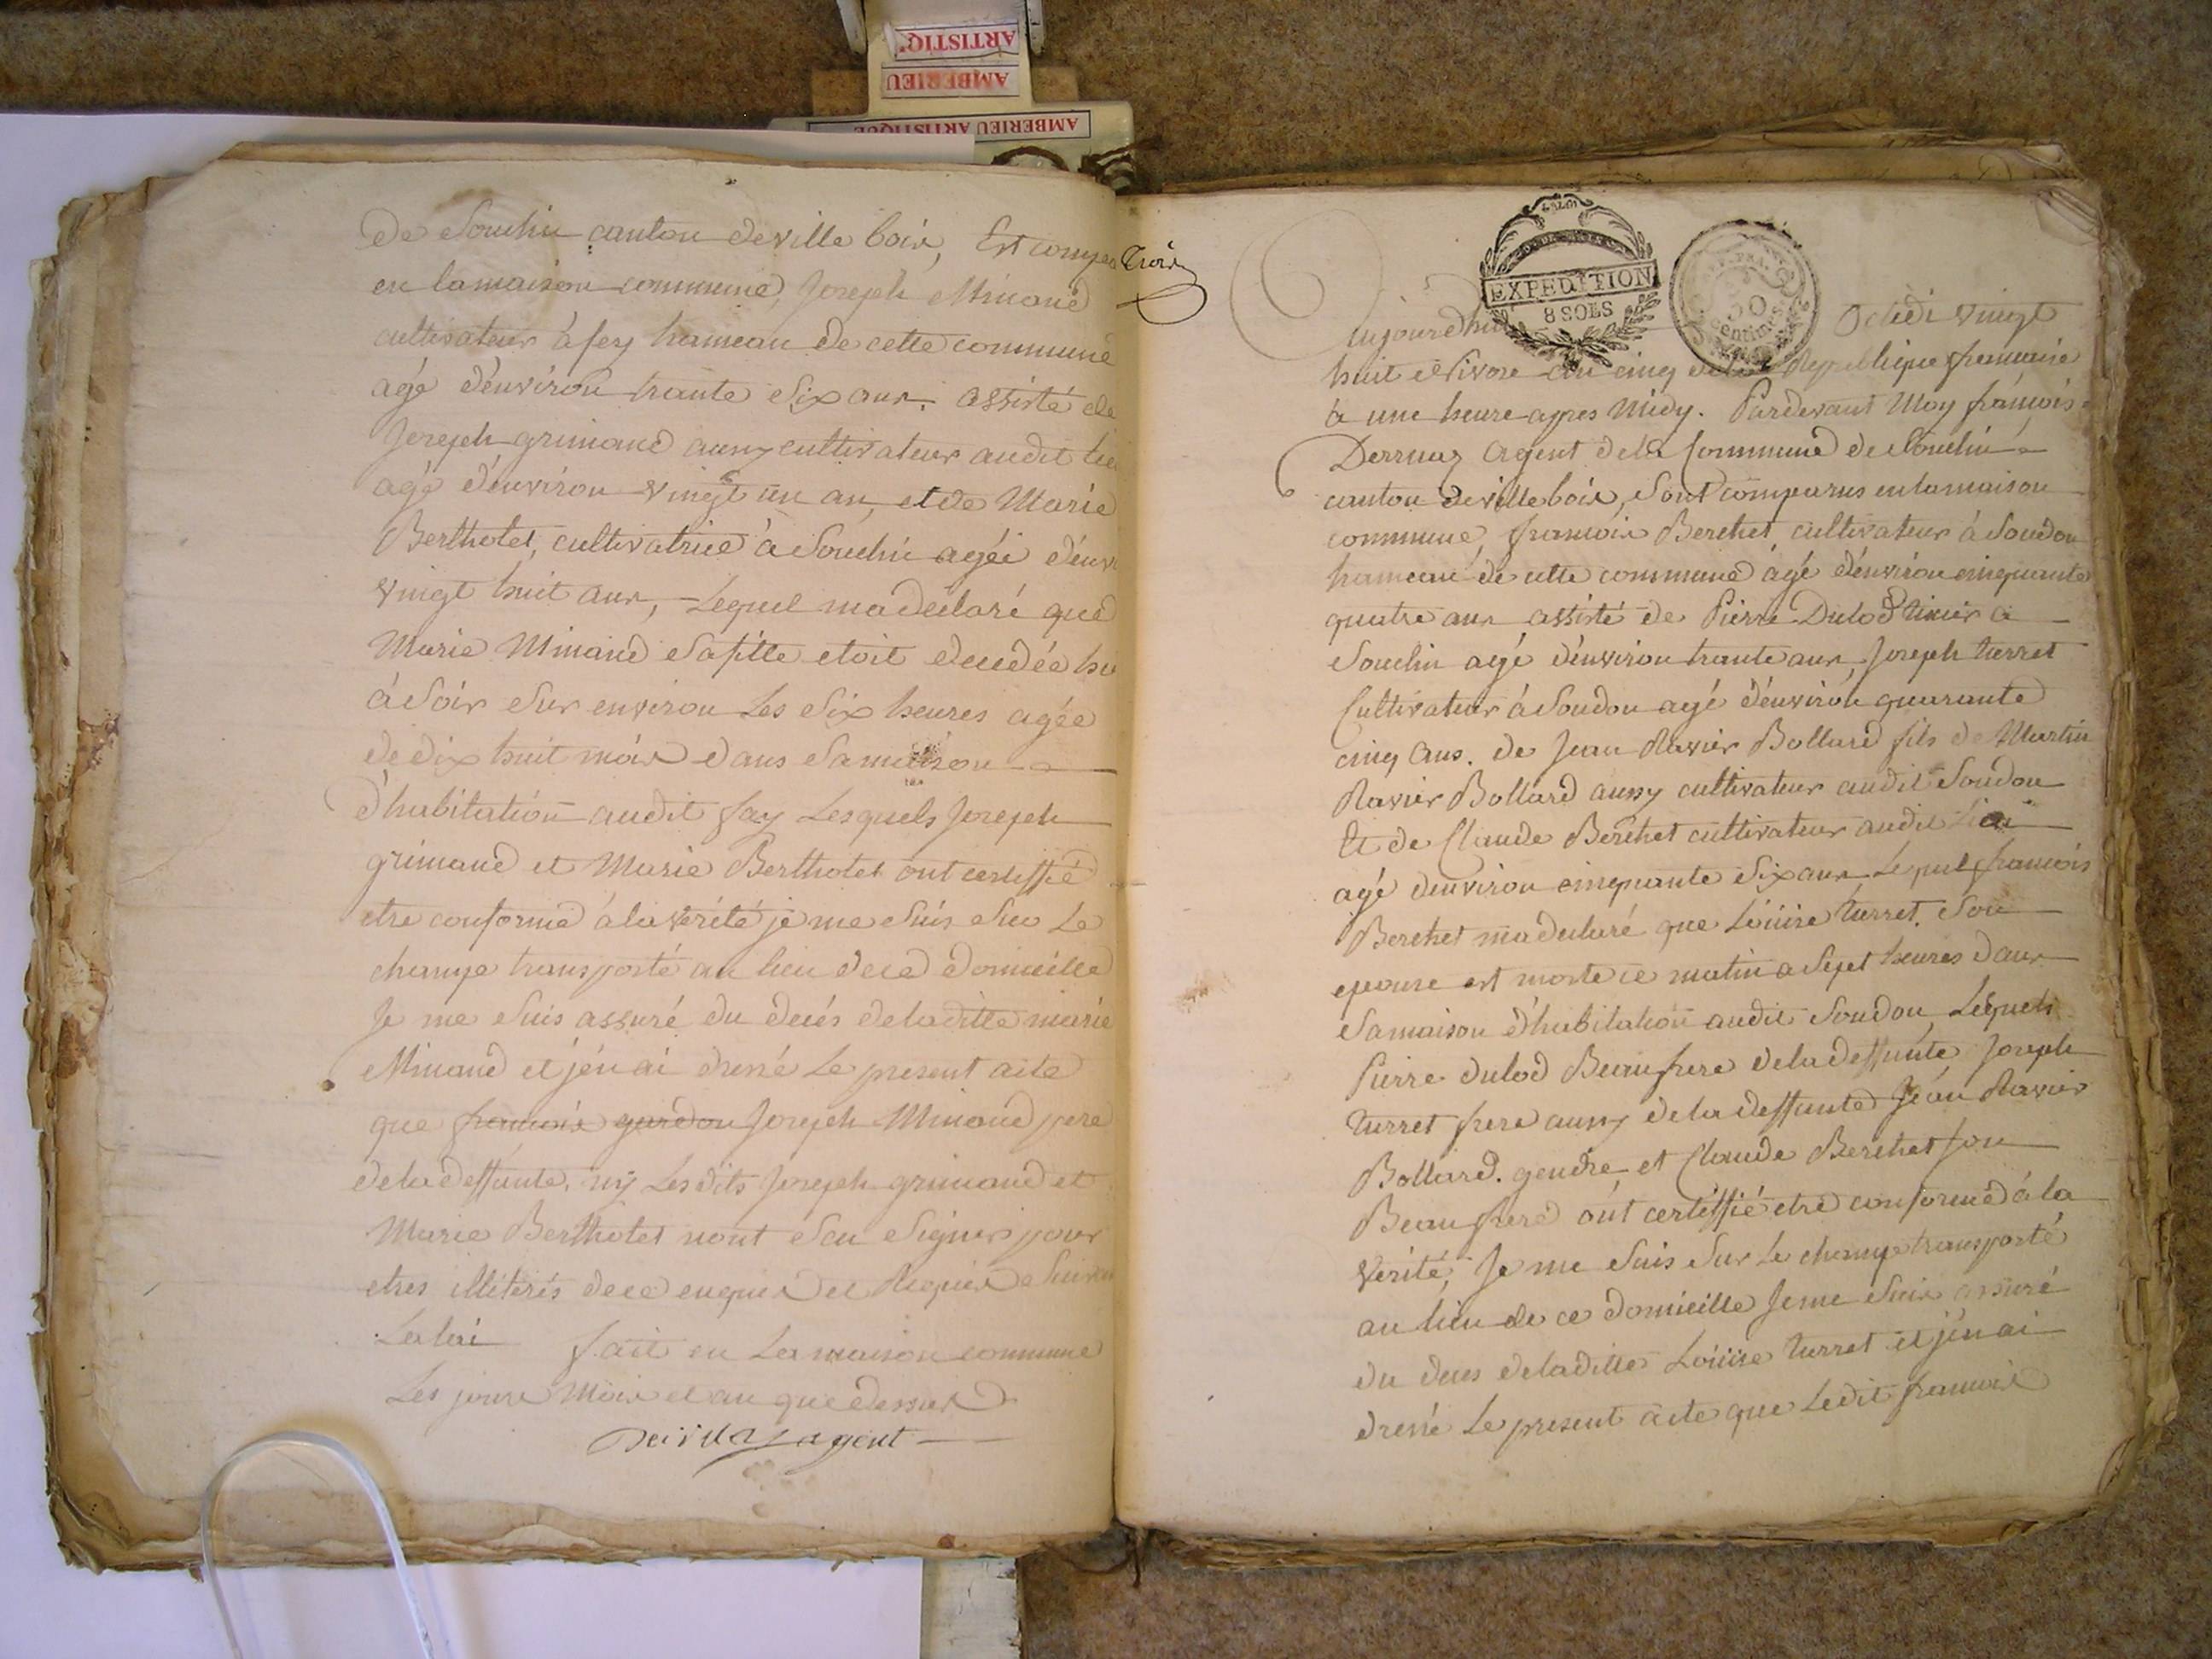 ARTISTIQ
AMBERIEU
AMBERIEU ARTISTIQUE
de Souclin canton de ville bois, Est compa
en la maison commune, Joseph Minand
cultivateur à fey hameau de cette commune
agé d'environ trante Six ans. assisté de
Joseph grimand aussy cultivateur audit lie
agé d'environ vingt un an, et de Marie
Bertholet, cultivatrice à Souclin agéé d'envi
vingt huit ans, Lequel ma déclaré que
Marie Minand Sa fille etoit decedée hi
à Soir Sur environ Les Six heures agée
de dix huit mois dans Sa maison
d'habitation audit fay Lesquels Joseph
grimand et Marie Bertholet ont certiffié
etre conforme à la vérité je me Suis Sur Le
champ transporté au lieu de ce domicille
Je me Suis assuré du decés de laditte marie
Minand et j'en ai dressé Le present acte
que francois gurdon Joseph Minand pere
de la deffunte. ny Lesdits Joseph grimand et
Marie Berthotet nont Scu Signer pour
etres illiterés de ce enquis et Requis Suivan
La loi fait en La maison commune
Les jours Mois et an que dessus
Derruaz agent
Trois
EXPEDITION
8 SOLS
30
centimes
Aujourdhui Octidi vingt
huit Nivose an cinq de la Republique francaise
à une heure apres Midy. Pardevant Moy francois
Derruaz Agent de la Commune de Souclin
canton de ville bois, Sont comparus en la maison
commune, francois Berchet cultivateur à Soudon
hameau de cette commune agé d'environ cinquante
quatre ans assisté de Pierre Dulod a
Souclin agé d'environ trante ans, Joseph turret
Cultivateur à Soudon agé d'environ quarante
cinq Ans. de Jean Ravier Bollard fils de Martin
Ravier Bollard aussy cultivateur audit Soudon
Et de Claude Berchet cultivateur audit
agé d'environ cinquante Six ans Lequel francois
Berchet m'a declaré que Loüise turret. Son
epouse est morte ce matin a Sept heures dans
Sa maison d'habitation audit Soudon, Lesquels
Pierre dulod Beaufrere de la deffunte, Joseph
turret frere aussy de la deffunte Jean Ravier
Bollard. gendre et Claude Berchet Son
Beaufrere ont certiffié etre conforme à la
vérité, Je me Suis Sur Le champ transporté
au lieu de ce domicille Je me Suis assuré
du deces de laditte Loüise turret et j'en ai
dressé Le present acte que Ledit francois